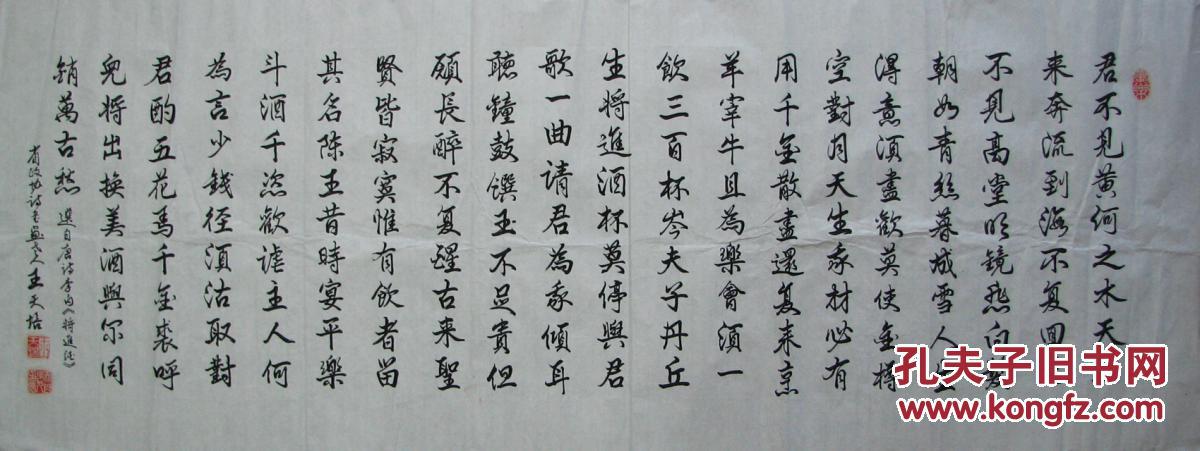 君不见黄河之水天
来奔流到海不复回
不见高堂明镜悲白
朝如青丝暮成雪人生
得意须尽歡莫使金樽
空對月天生我材必有
用千金散盡還复来烹
羊宰牛且為樂會須一
飲三百杯岑夫子丹丘
生将進酒杯莫停與君
歌一曲請君為我傾耳
聴鐘鼓饌玉不足貴但
願長醉不复醒古来聖
賢皆寂寞惟有飲者留
其名陈王昔時宴平樂
斗酒千恣歡謔主人何
為言少錢径須沽取對
君酌五花馬千金裘呼
兒将出换美酒與尔同
銷萬古愁 選自唐诗李白《将進酒》
省政协诗书画之人王天培
孔夫子旧书网
www.kongfz.com